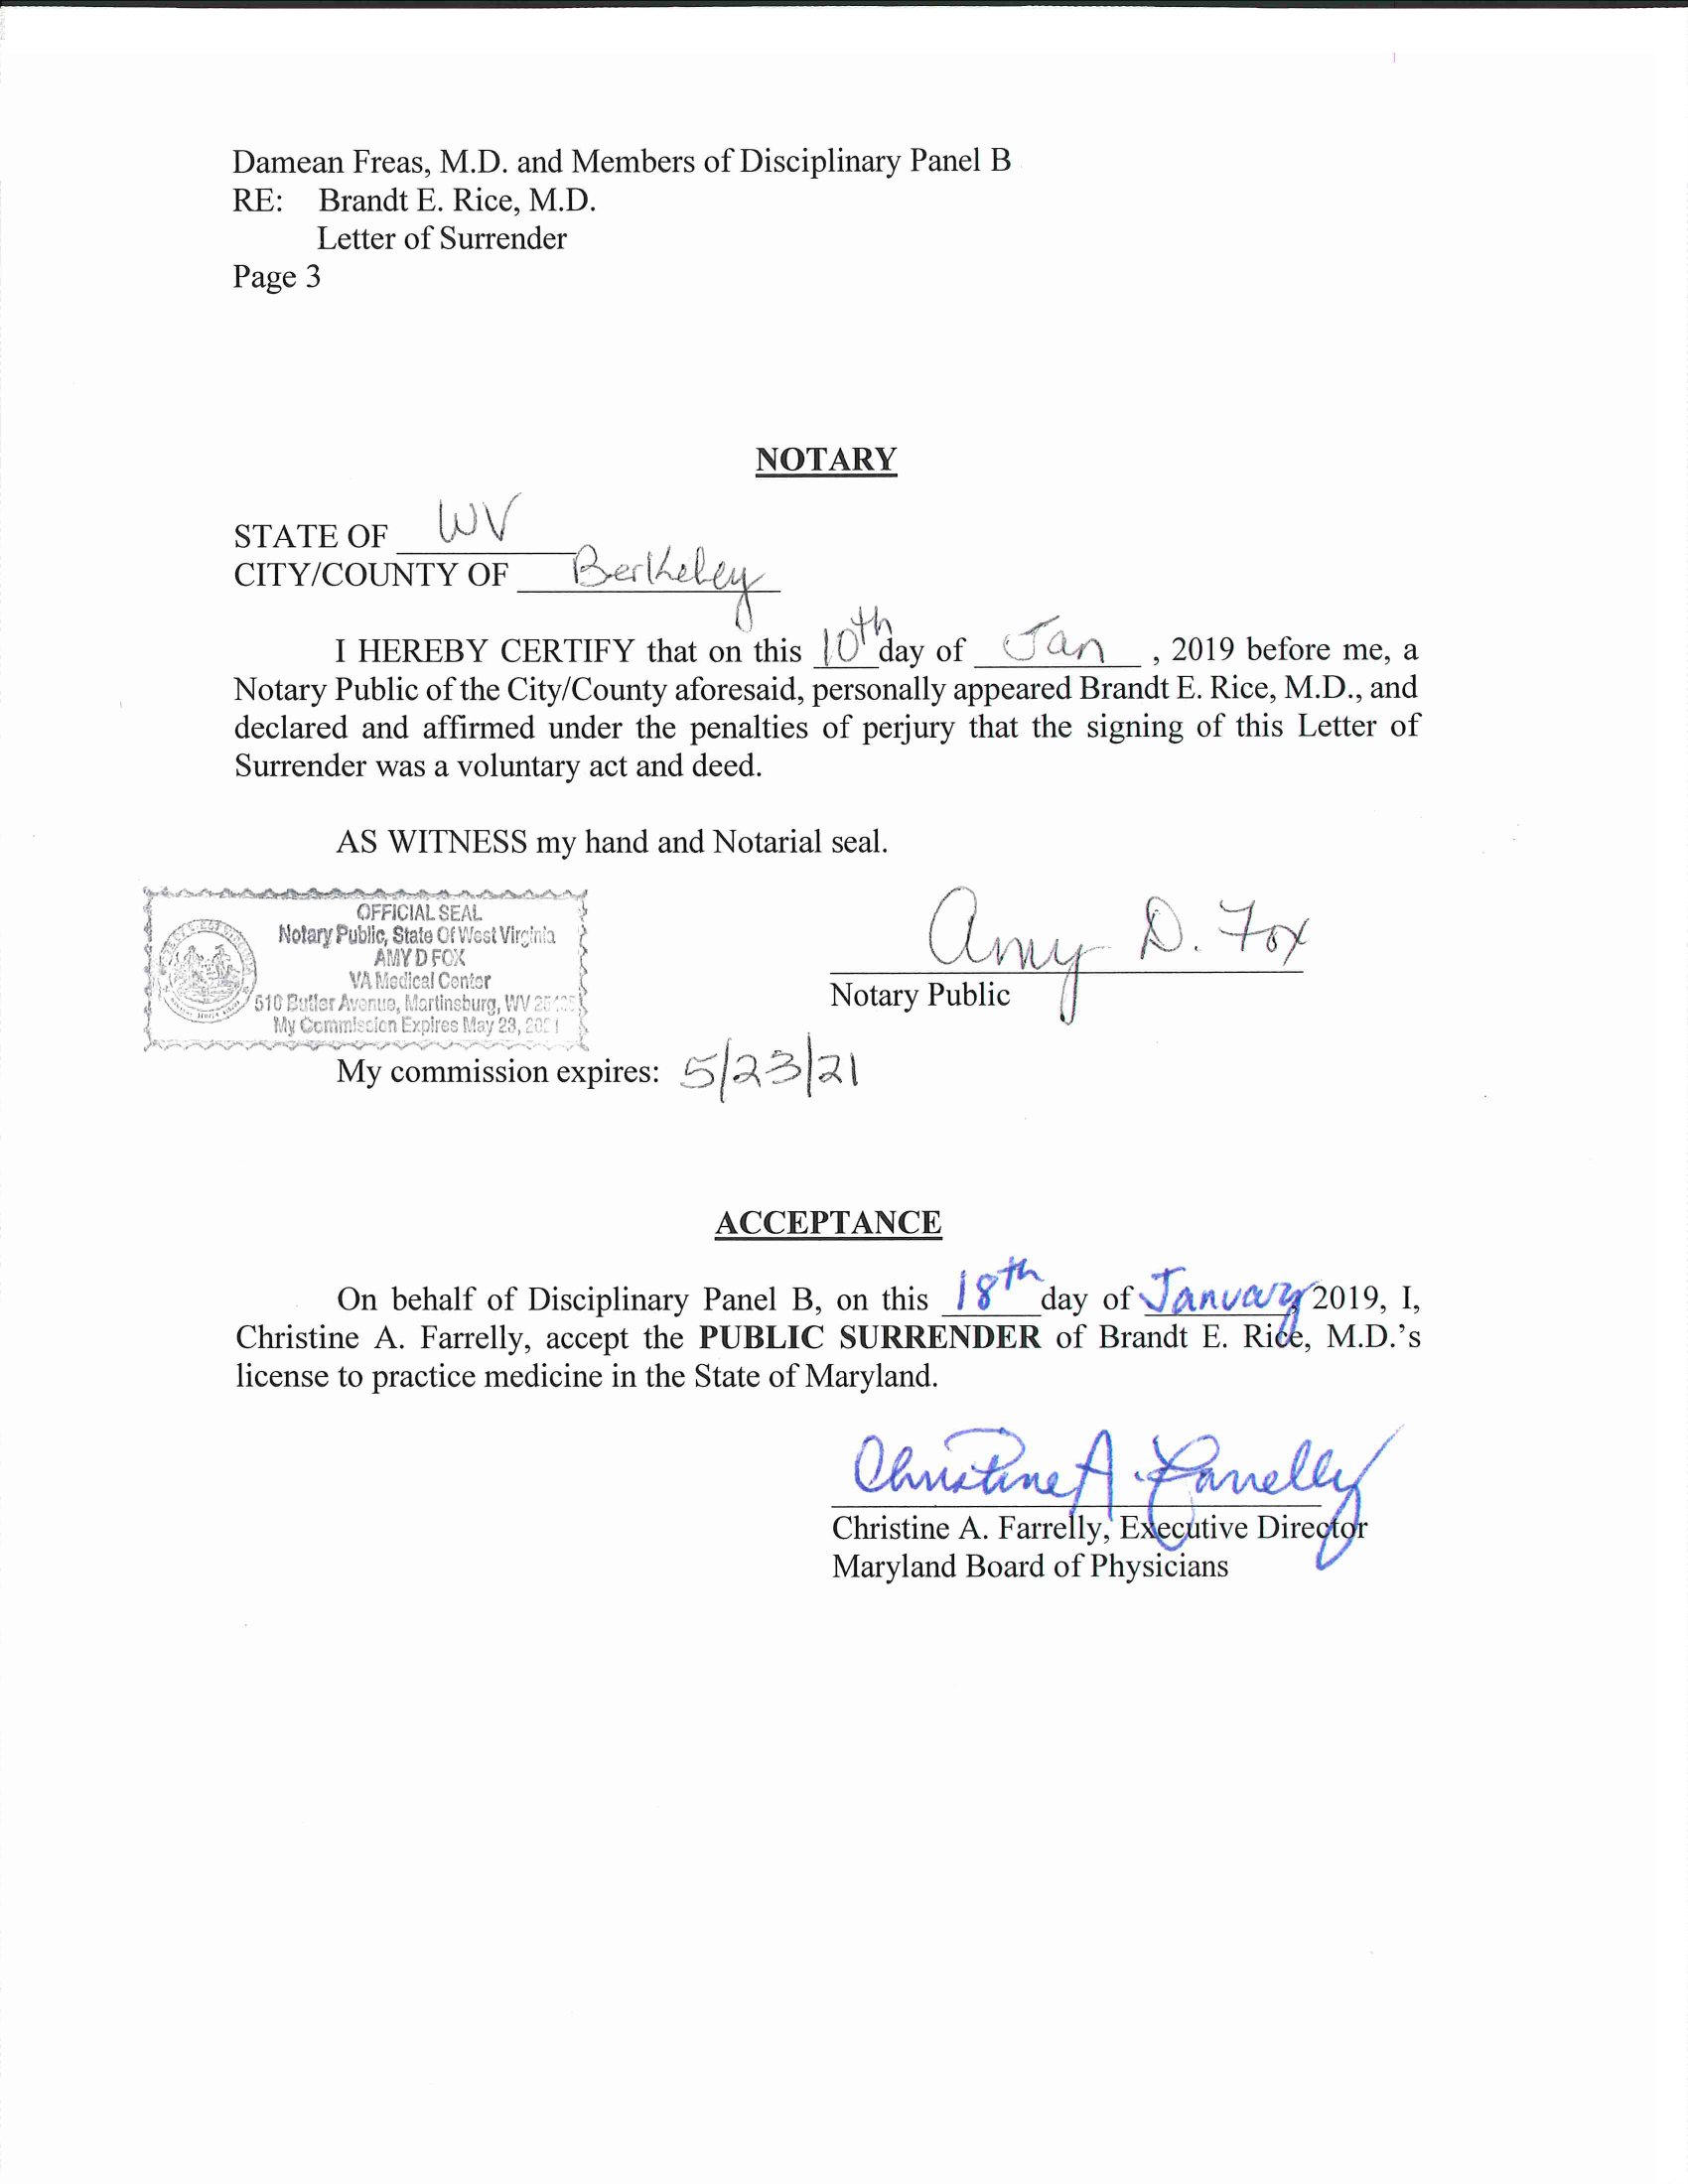 Damean Freas, M.D. and Members of Disciplinary Panel B
RE: Brandt E. Rice, M.D.
Letter of Surrender
Page 3
NOTARY
STATE OF WV
CITY/COUNTY OF Berkeley
I HEREBY CERTIFY that on this 10th day of Jan , 2019 before me, a
Notary Public of the City/County aforesaid, personally appeared Brandt E. Rice, M.D., and
declared and affirmed under the penalties of perjury that the signing of this Letter of
Surrender was a voluntary act and deed.
AS WITNESS my hand and Notarial seal.
OFFICIAL SEAL
Notary Public, State Of West Virginia
AMY D FOX
VA Medical Center
510 Butler Avenue, Martinsburg, WV
My Commission Expires May 23, 2021
Amy D. Fox
Notary Public
My commission expires: 5/23/21
ACCEPTANCE
On behalf of Disciplinary Panel B, on this 18th day of January, 2019, I,
Christine A. Farrelly, accept the PUBLIC SURRENDER of Brandt E. Rice, M.D.'s
license to practice medicine in the State of Maryland.
Christine A. Farrelly
Christine A. Farrelly, Executive Director
Maryland Board of Physicians